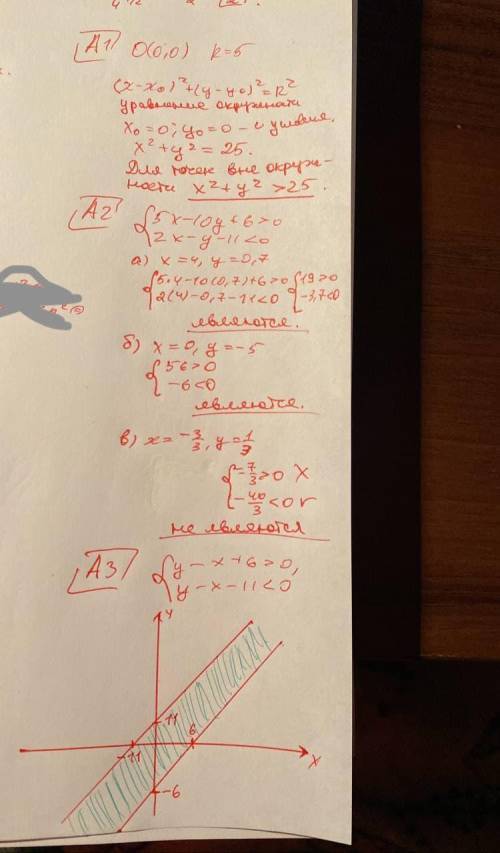 A1 O(0,0) R=5
(x-x₀)²+(y-y₀)²=R²
уравнение окружности
x₀=0; y₀=0 - из условия.
x²+y²=25.
Для точек вне окруж-
ности x²+y²>25.
A2 {5x-10y+6>0
2x-y-11<0
а) x=4, y=0,7
{5·4-10(0,7)+6>0 {19>0
2(4)-0,7-11<0 -3,7<0
являются.
б) x=0, y=-5
{56>0
-6<0
являются.
в) x=-3/3, y=1/3
{-7/3>0 X
-40/3<0 v
не являются
A3 {y-x+6>0,
y-x-11<0
y
11
6
-11
x
-6